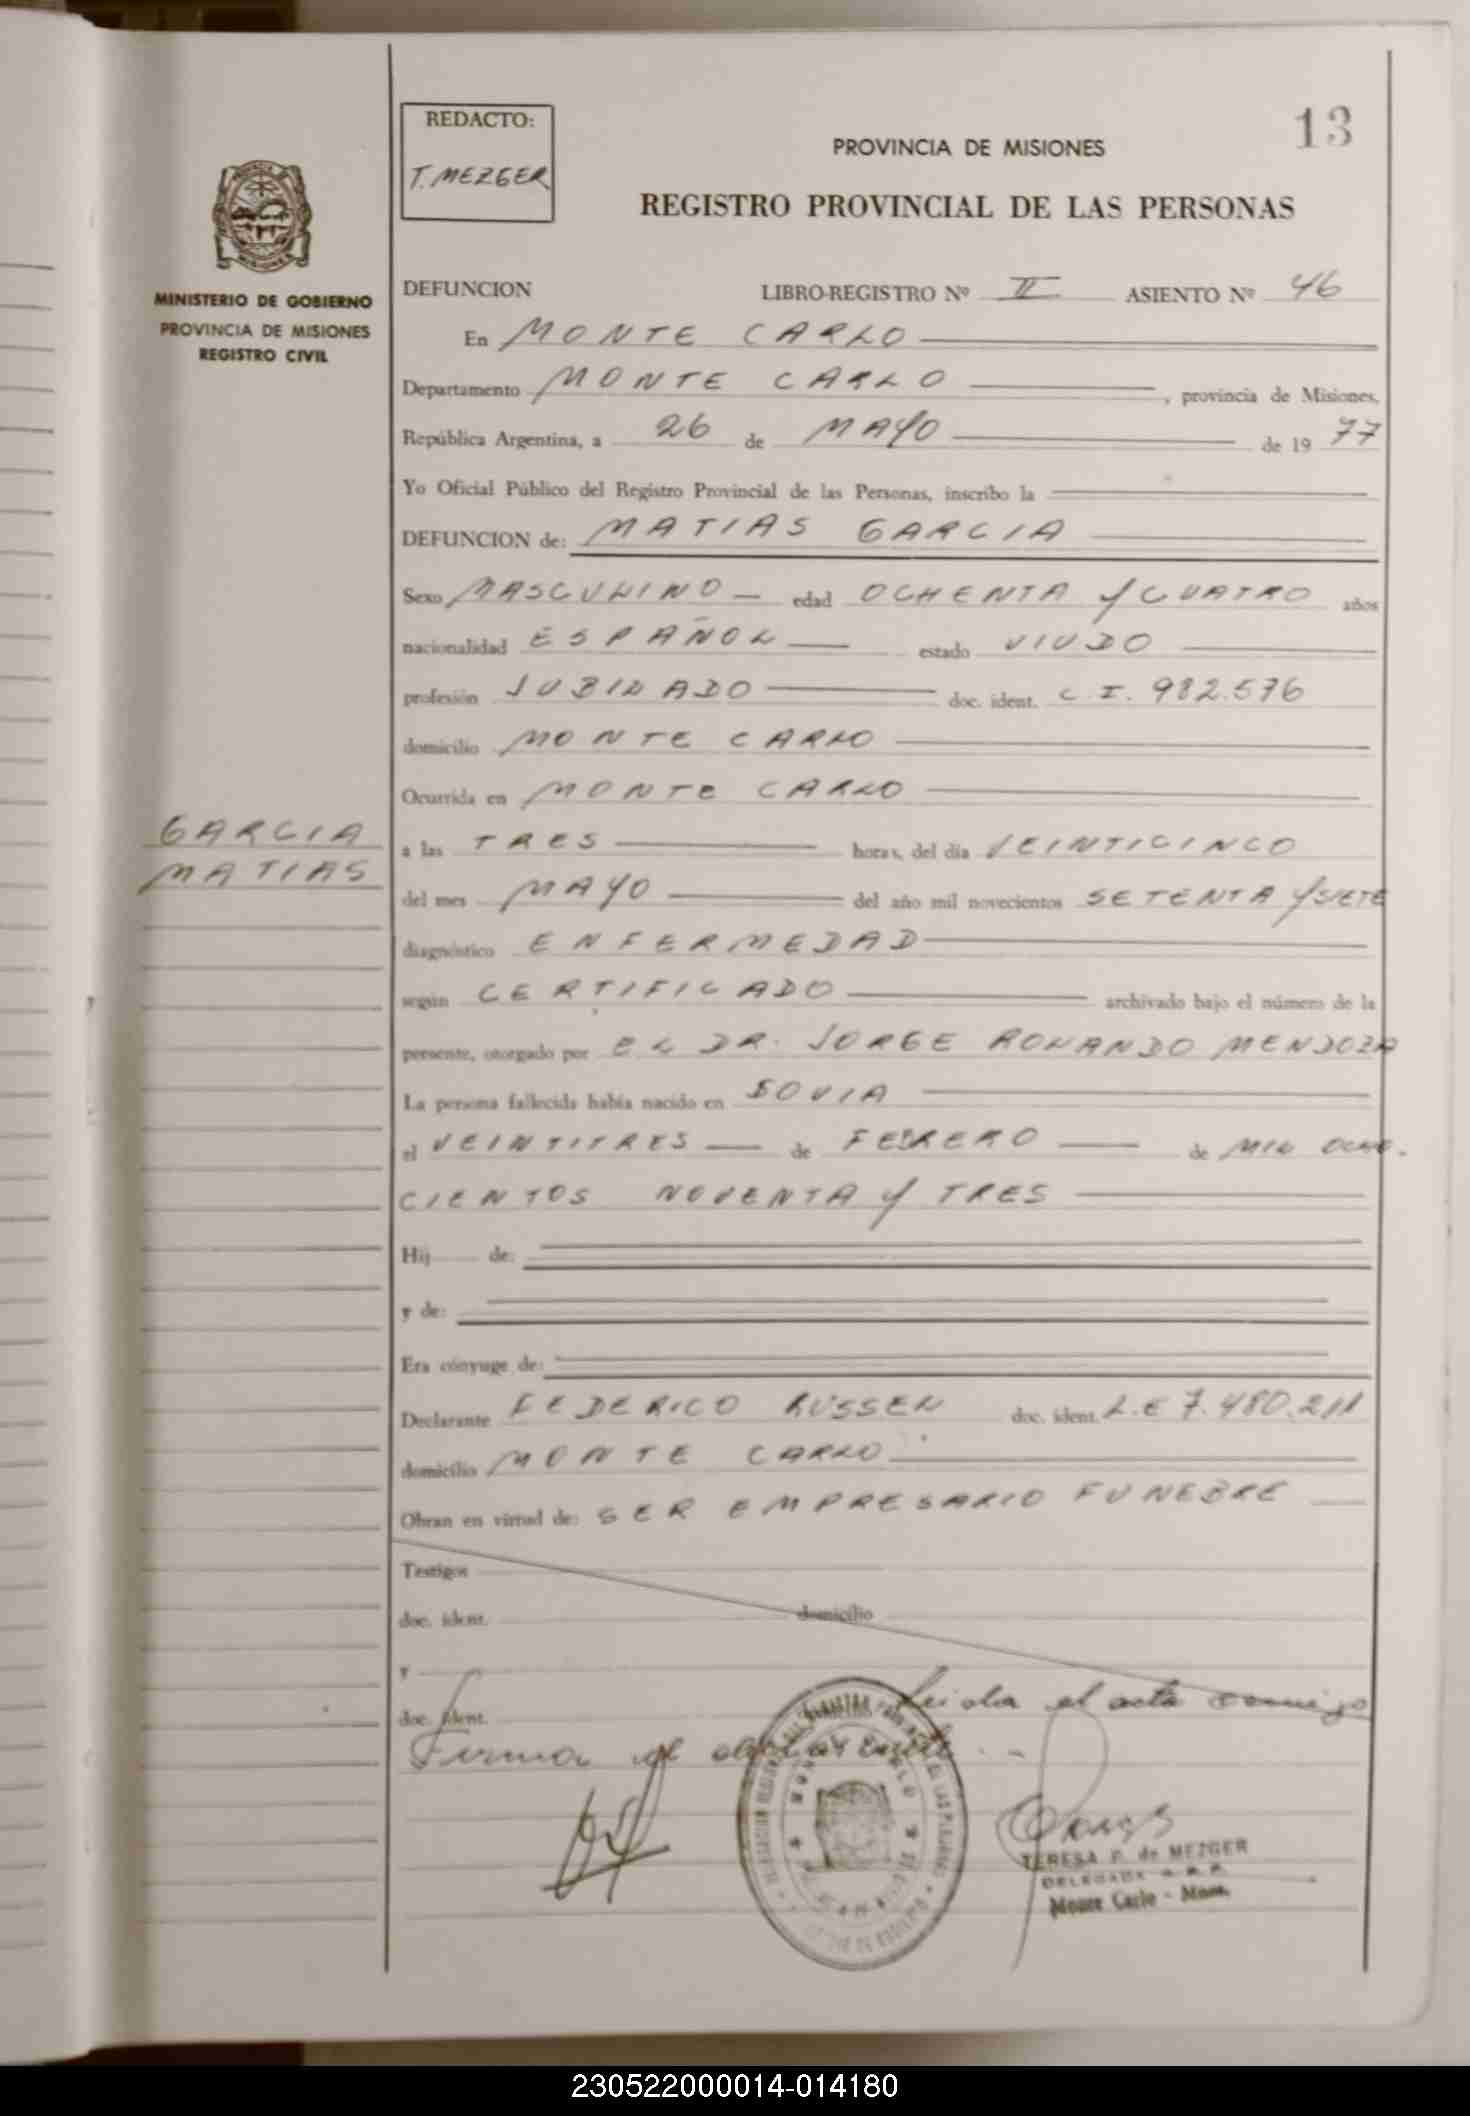 13
REDACTO:
T. MEZGER
PROVINCIA DE MISIONES
REGISTRO PROVINCIAL DE LAS PERSONAS
MISIONES
MINISTERIO DE GOBIERNO
PROVINCIA DE MISIONES
REGISTRO CIVIL
DEFUNCION LIBRO-REGISTRO Nº II ASIENTO Nº 46
En MONTE CARLO
Departamento MONTE CARLO, provincia de Misiones,
República Argentina, a 26 de MAYO de 1977
Yo Oficial Público del Registro Provincial de las Personas, inscribo la
DEFUNCION de: MATIAS GARCIA
Sexo MASCULINO edad OCHENTA Y CUATRO años
nacionalidad ESPAÑOL estado VIUDO
profesión JUBILADO doc. ident. C.I. 982.576
domicilio MONTE CARLO
Ocurrida en MONTE CARLO
GARCIA
MATIAS
a las TRES horas, del día VEINTICINCO
del mes MAYO del año mil novecientos SETENTA Y SIETE
diagnóstico ENFERMEDAD
según CERTIFICADO archivado bajo el número de la
presente, otorgado por EL DR. JORGE ROLANDO MENDOZA
La persona fallecida había nacido en
el VEINTITRES de FEBRERO de MIL OCHO-
CIENTOS NOVENTA Y TRES
Hij de:
y de:
Era cónyuge de:
Declarante FEDERICO doc. ident. L.E 7.480.211
domicilio MONTE CARLO
Obran en virtud de: SER EMPRESARIO FUNEBRE
Testigos
doc. ident. domicilio
y
doc. ident. Leida el acta conmigo
Firma el declarante.-
MONTE CARLO
TERESA P. de MEZGER
DELEGADA R. P. P.
Monte Carlo - Mnes.
230522000014-014180